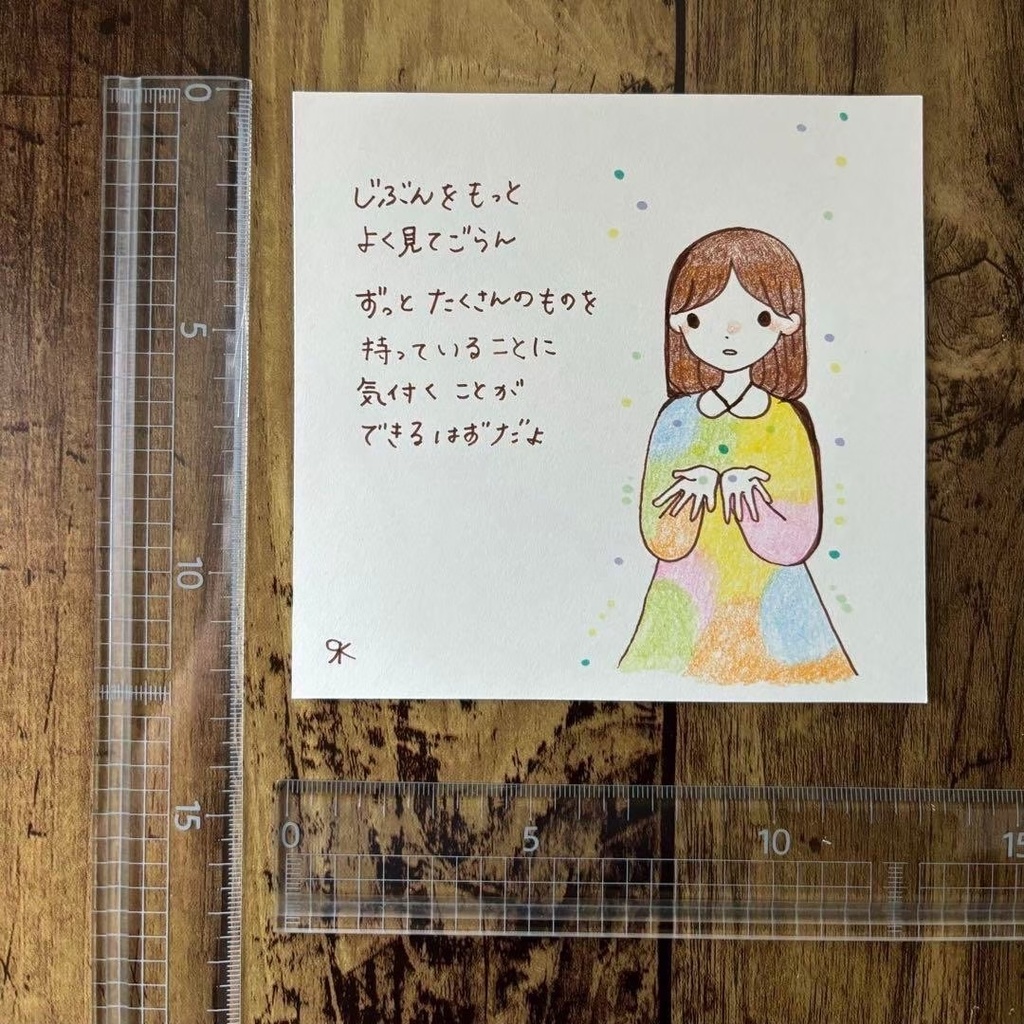 じぶんをもっと
よく見てごらん
ずっと たくさんのものを
持っていることに
気付く ことが
できるはずだよ
0
5
10
15
0
5
10
15